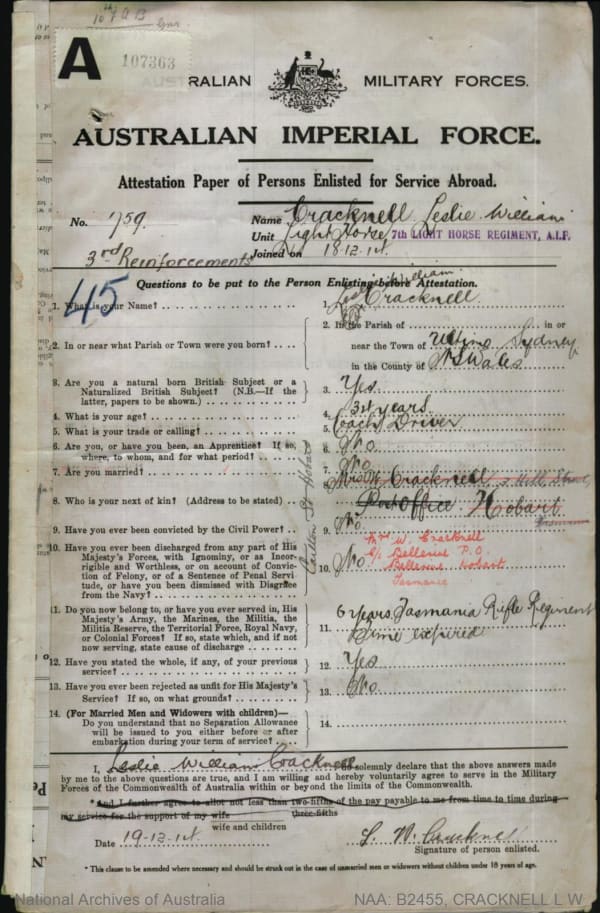 10th A B
A
107363
AUSTRALIAN MILITARY FORCES.
AUSTRALIAN IMPERIAL FORCE.
Attestation Paper of Persons Enlisted for Service Abroad.
No. 759 Name Cracknell Leslie William
Unit Light Horse, 7th LIGHT HORSE REGIMENT, A.I.F.
3rd Reinforcements Joined on 18.12.14
Questions to be put to the Person Enlisting before Attestation.
45
1. What is your Name? 1. Leslie William Cracknell
2. In or near what Parish or Town were you born? 2. In the Parish of in or
near the Town of Ultimo Sydney
in the County of N S Wales
3. Are you a natural born British Subject or a
Naturalized British Subject? (N.B.—If the
latter, papers to be shown.) 3. Yes
4. What is your age? 4. 34 years
5. What is your trade or calling? 5. Coach Driver
6. Are you, or have you been, an Apprentice? If so,
where, to whom, and for what period? 6. No
7. Are you married? 7. No
8. Who is your next of kin? (Address to be stated) 8. Mrs W. Cracknell Hill Street,
Post Office Hobart
Tasmania
Carlton St Hobart
9. Have you ever been convicted by the Civil Power? 9. No
Mrs W. Cracknell
C/o Bellerive P.O
Bellerive Hobart
Tasmania
10. Have you ever been discharged from any part of His
Majesty's Forces, with Ignominy, or as Incor-
rigible and Worthless, or on account of Convic-
tion of Felony, or of a Sentence of Penal Servi-
tude, or have you been dismissed with Disgrace
from the Navy? 10. No
11. Do you now belong to, or have you ever served in, His
Majesty's Army, the Marines, the Militia, the
Militia Reserve, the Territorial Force, Royal Navy,
or Colonial Forces? If so, state which, and if not
now serving, state cause of discharge 11. 6 years Tasmania Rifle Regiment
Time expired
12. Have you stated the whole, if any, of your previous
service? 12. Yes
13. Have you ever been rejected as unfit for His Majesty's
Service? If so, on what grounds? 13. No
14. (For Married Men and Widowers with children)—
Do you understand that no Separation Allowance
will be issued to you either before or after
embarkation during your term of service? 14.
I, Leslie William Cracknell do solemnly declare that the above answers made
by me to the above questions are true, and I am willing and hereby voluntarily agree to serve in the Military
Forces of the Commonwealth of Australia within or beyond the limits of the Commonwealth.
*And I further agree to allot not less than two-fifths of the pay payable to me from time to time during
three-fifths
my service for the support of my wife
wife and children
Date 19-12-14 L. W. Cracknell
Signature of person enlisted.
*This clause to be amended where necessary and should be struck out in the case of unmarried men or widowers without children under 18 years of age.
National Archives of Australia NAA: B2455, CRACKNELL L W